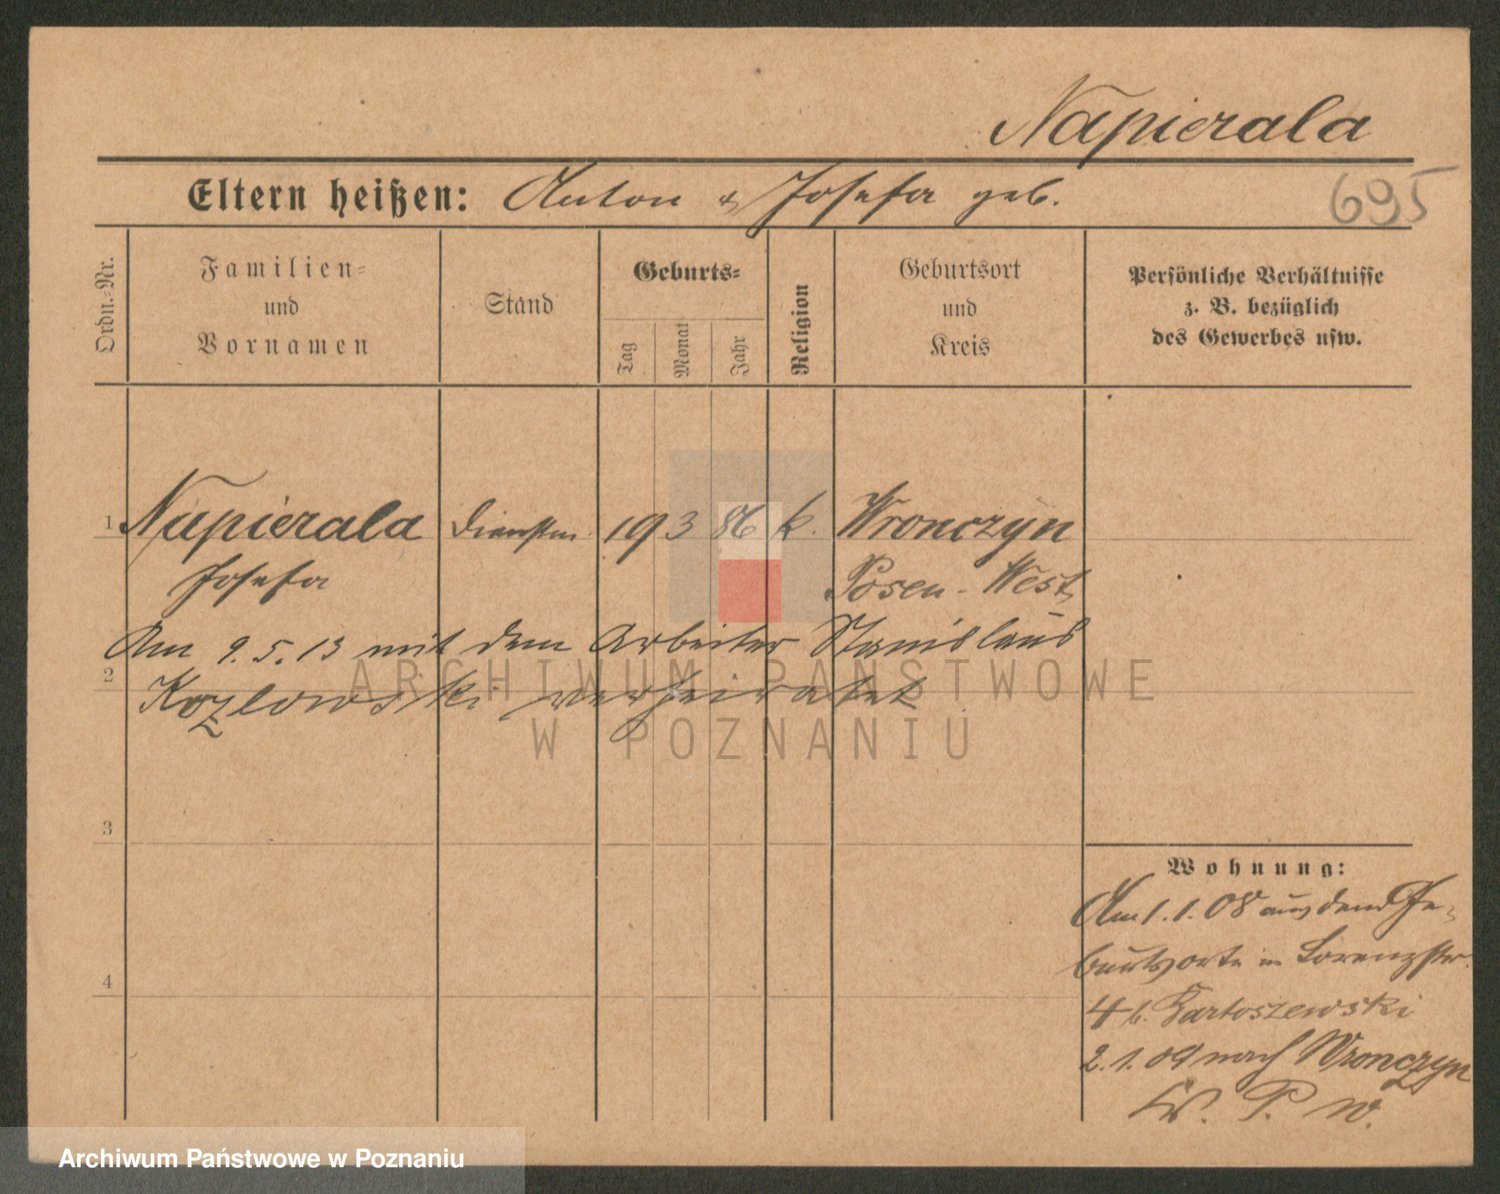 Napierala
Eltern heißen: Anton & Josefa geb.
695
Ordn.-Nr.
Familien-
und
Vornamen
Stand
Geburts-
Tag
Monat
Jahr
Religion
Geburtsort
und
Kreis
Persönliche Verhältnisse
z. B. bezüglich
des Gewerbes usw.
1 Napierala Dienstm. 19 3 86 k. Wronczyn
Josefa Posen-West
Am 9.5.13 mit dem Arbeiter Stanislaus
2 Kozlowski verheiratet
3
Wohnung:
Am 1.1.08 aus dem Ge-
burtsorte in Lorenzstr.
4
4 b. Bartoszewski
2.1.09 nach Wronczyn
Kr. P. W.
ARCHIWUM PAŃSTWOWE
W POZNANIU
Archiwum Państwowe w Poznaniu